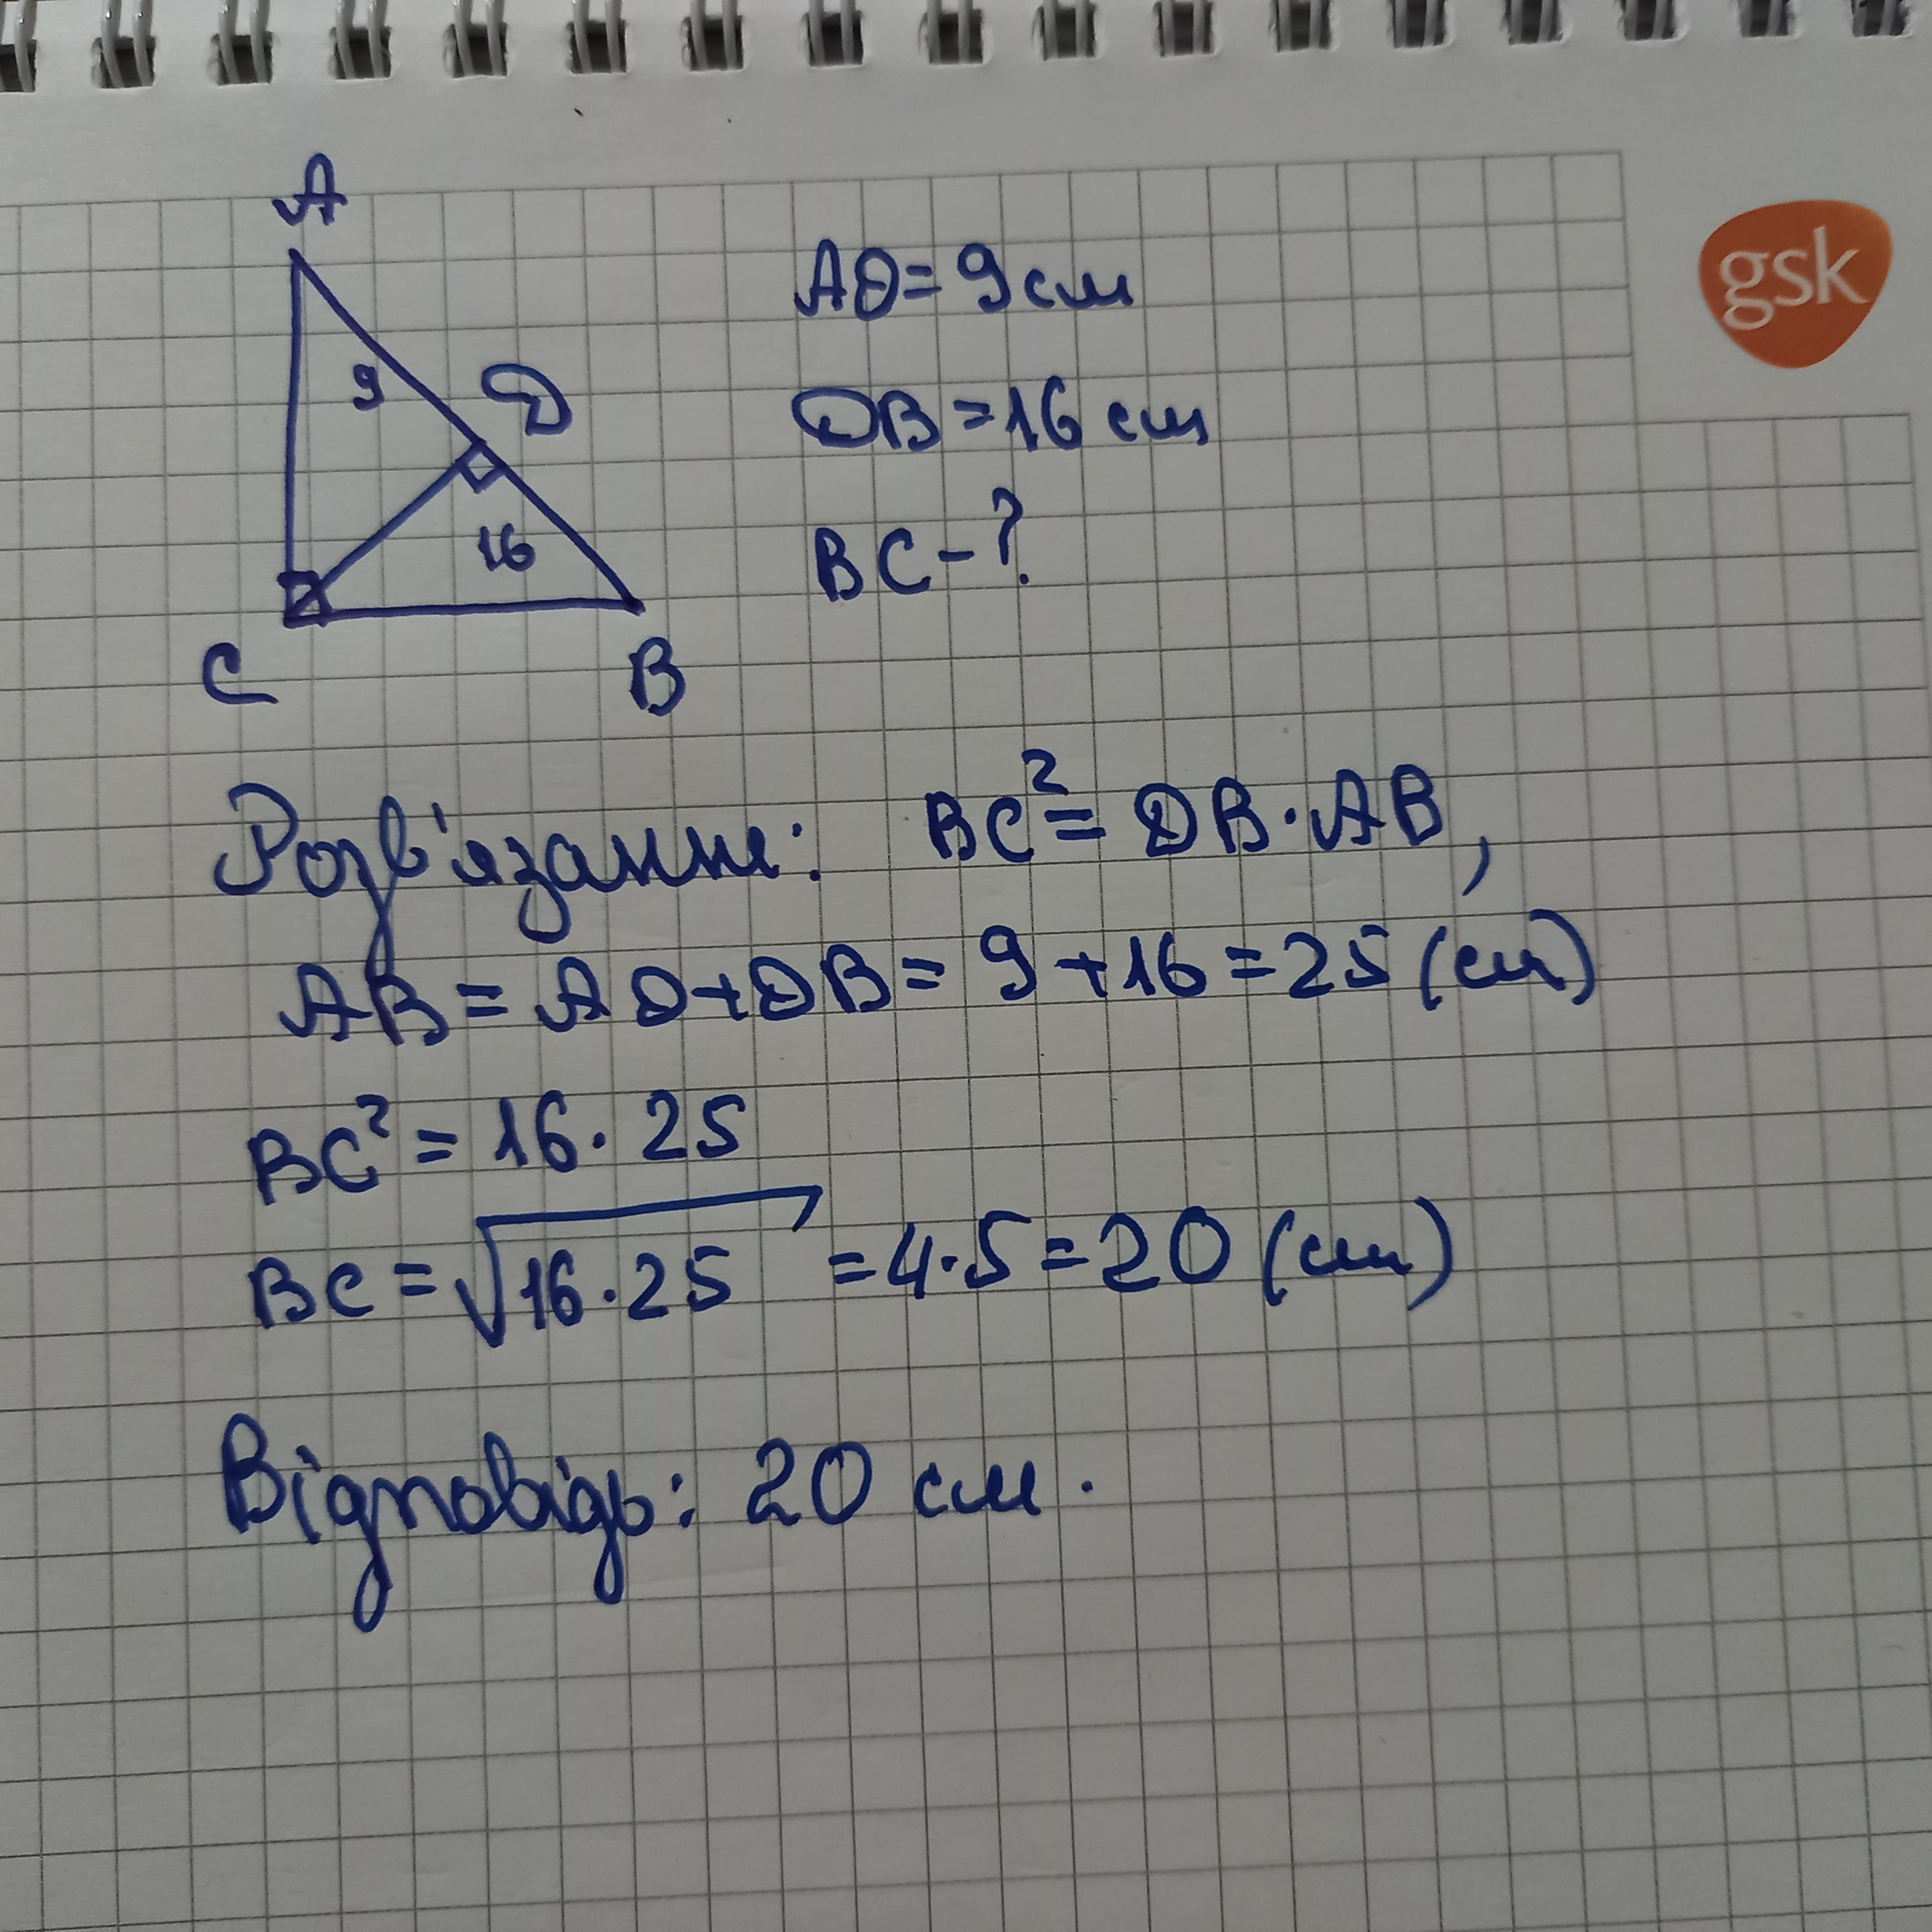 A
AD = 9 см
gsk
9
D
DB = 16 см
16
BC - ?
C
B
Розв'язання: BC² = DB · AB,
AB = AD + DB = 9 + 16 = 25 (см)
BC² = 16 · 25
BC = √16 · 25 = 4 · 5 = 20 (см)
Відповідь: 20 см.